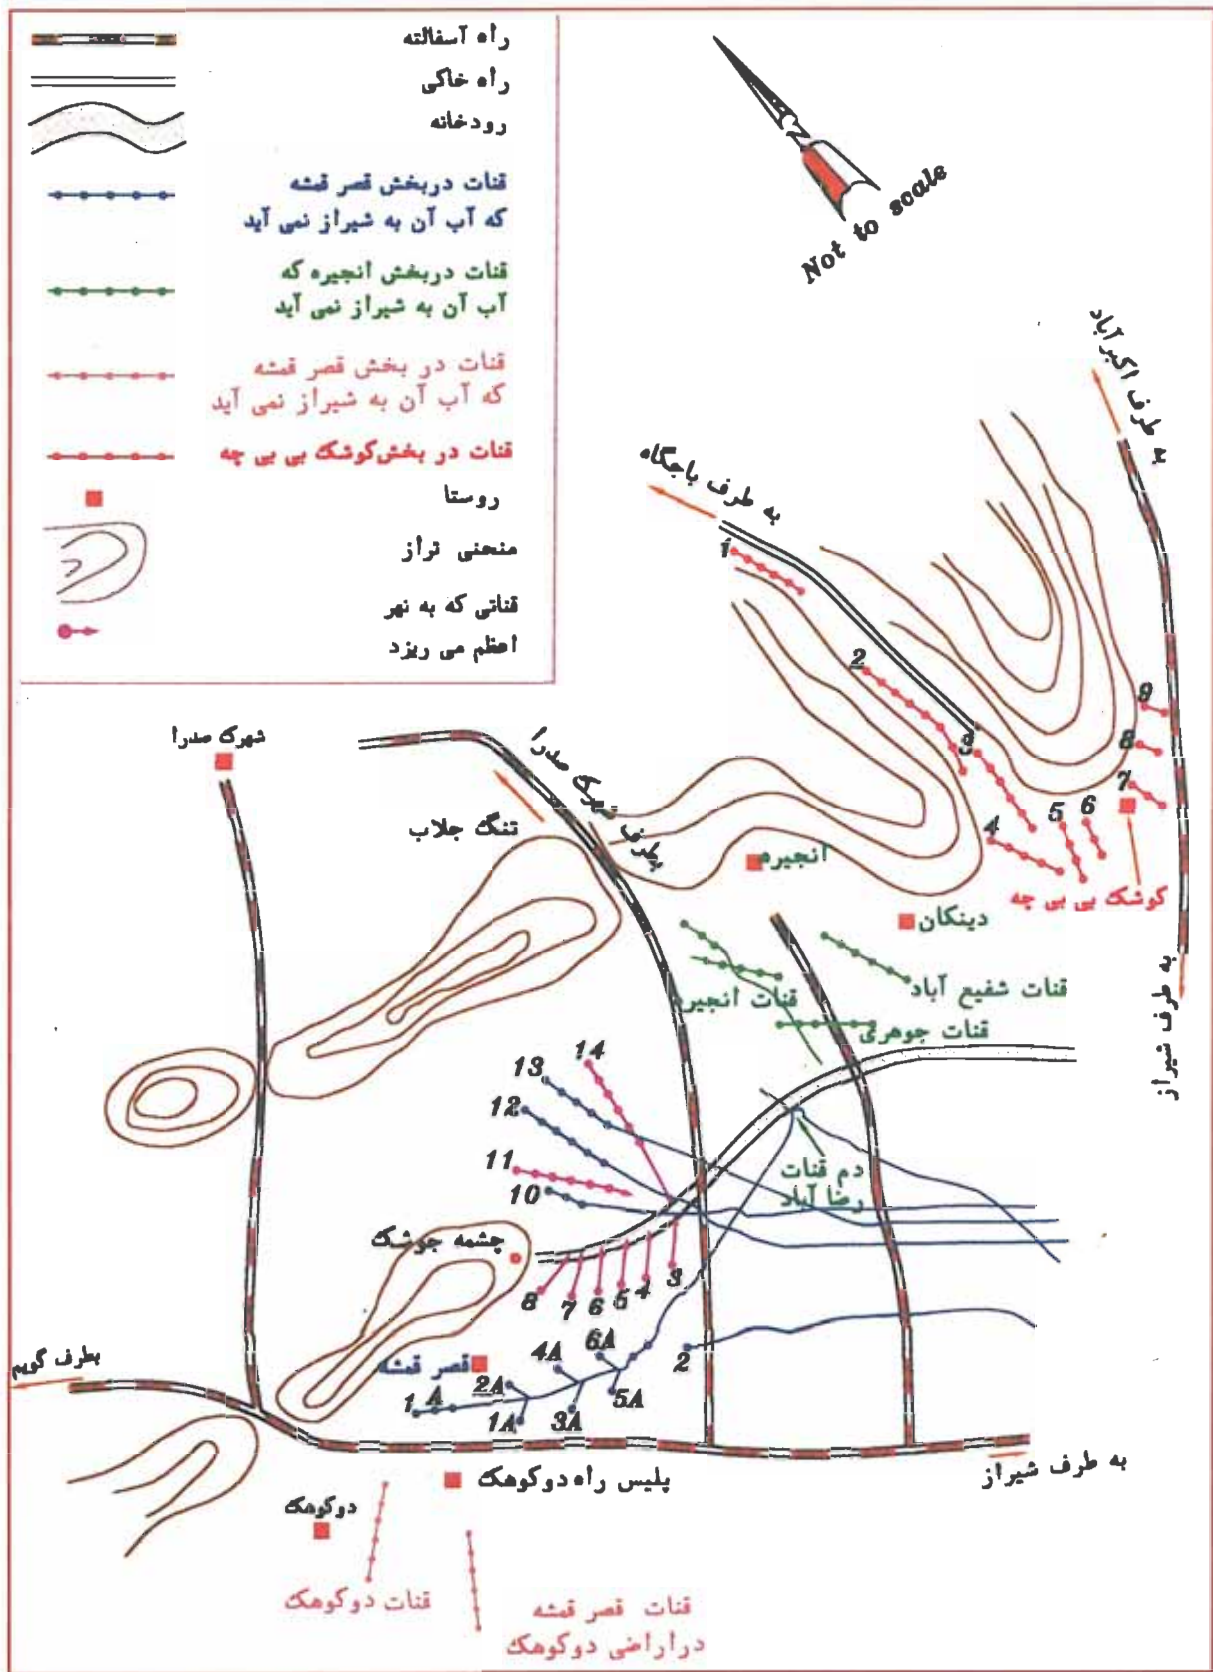 راه آسفالته
راه خاکی
رودخانه
قنات دربخش قصر قمشه
که آب آن به شیراز نمی آید
قنات دربخش انجیره که
آب آن به شیراز نمی آید
قنات در بخش قصر قمشه
که آب آن به شیراز نمی آید
قنات در بخش کوشک بی بی چه
روستا
منحنی تراز
قناتی که به نهر
اعظم می ریزد
Not to scale
به طرف اکبرآباد
به طرف باجگاه
1
2
3
4
5
6
7
8
9
کوشک بی بی چه
به طرف شیراز
شهرک صدرا
بطرف شهرک صدرا
تنگ جلاب
انجیره
دینکان
قنات شفیع آباد
قنات انجیره
قنات جوهری
14
13
12
11
10
دم قنات
رضا آباد
چشمه جوشک
8
7
6
5
4
3
2
قصر قمشه
1 A
2A
1A
4A
3A
6A
5A
بطرف گویم
به طرف شیراز
پلیس راه دوکوهک
دوکوهک
قنات دوکوهک
قنات قصر قمشه
دراراضی دوکوهک